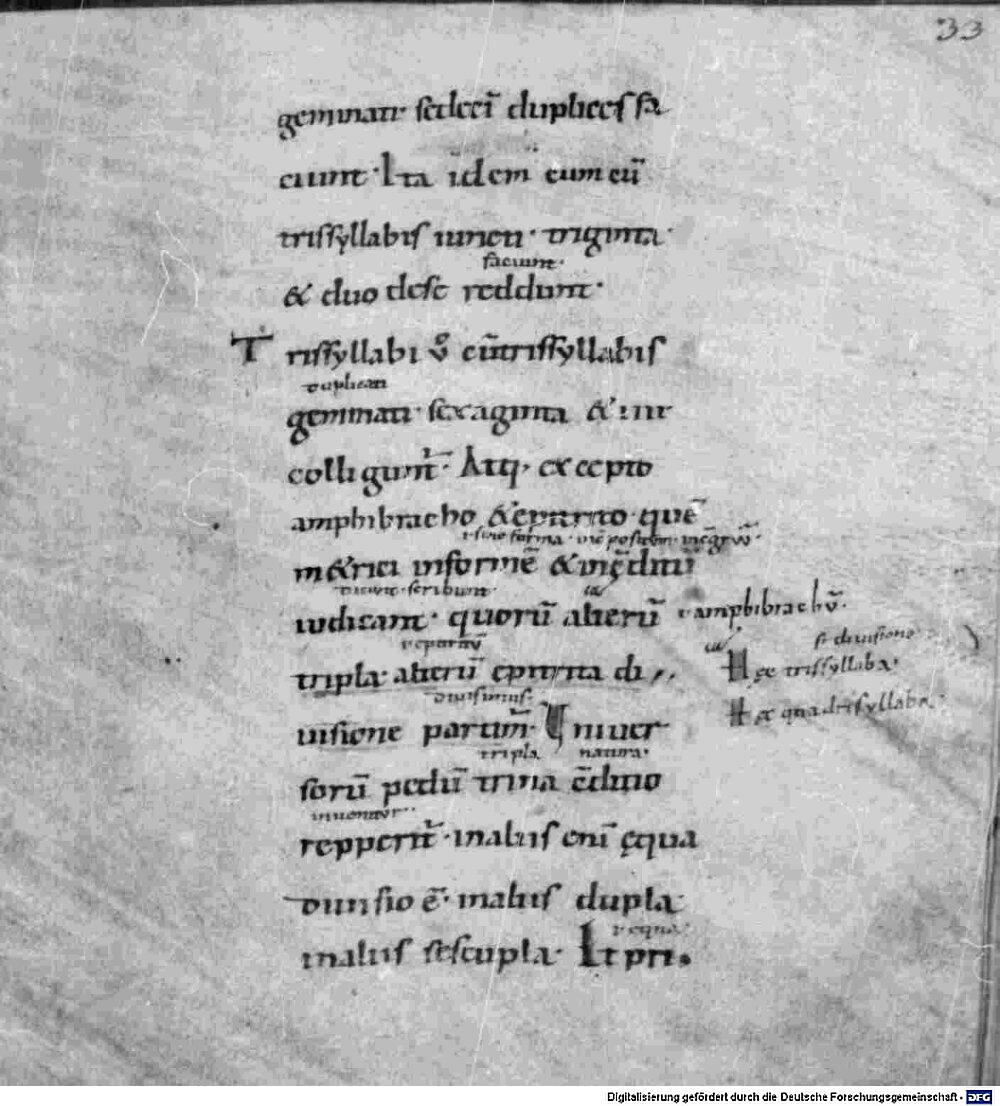 33
geminati· sedecī duplices fa
ciunt· Ita idem cum cū
trissyllabis iuncti· triginta·
faciunt·
& duo dese reddunt·
Trissyllabi v̊ cūtrissyllabis
duplicati
geminati· sexaginta & iiii
colligunt̄· Atq· excepto
amphibracho &epitrito· quē
m&rici informē &incditū
dicunt· scribunt·
iudicant· quorū alterū amphibrachū·
tripla· alterū epitrita di
Hęc trissyllaba·
diuisimus·
uisione partim̄· Uniuer
Hęc quadrisyllaba·
tripla natura·
sorū pedū trina c̄ditio
inuenitur
repperit̄· inaliis enī ęqua
diuisio ē· inaliis dupla·
ęqua·
inaliis sescupla· Et pri·
Digitalisierung gefördert durch die Deutsche Forschungsgemeinschaft - DFG